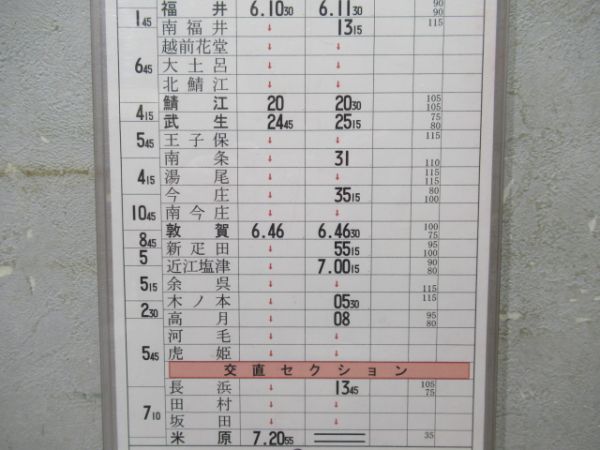 福井 6.10 30 6.11 30 90 90
1 45 南福井 ↓ 13 15 115
越前花堂 ↓ ↓
6 45 大土呂 ↓ ↓
北鯖江 ↓ ↓
鯖江 20 20 30 105 105
4 15 武生 24 45 25 15 75 80
5 45 王子保 ↓ ↓ 115
南条 ↓ 31 110
4 15 湯尾 ↓ ↓ 115 115
今庄 ↓ 35 15 80 100
10 45 南今庄 ↓ ↓
敦賀 6.46 6.46 30 100 75
8 45 新疋田 ↓ 55 15 95 100
5 近江塩津 ↓ 7.00 15 90 80
5 15 余呉 ↓ ↓ 115
木ノ本 ↓ 05 30 115
2 30 高月 ↓ 08 95 80
河毛 ↓ ↓
5 45 虎姫 ↓ ↓
交直セクション
長浜 ↓ 13 45 105 75
7 10 田村 ↓ ↓
坂田 ↓ ↓
米原 7.20 55 35